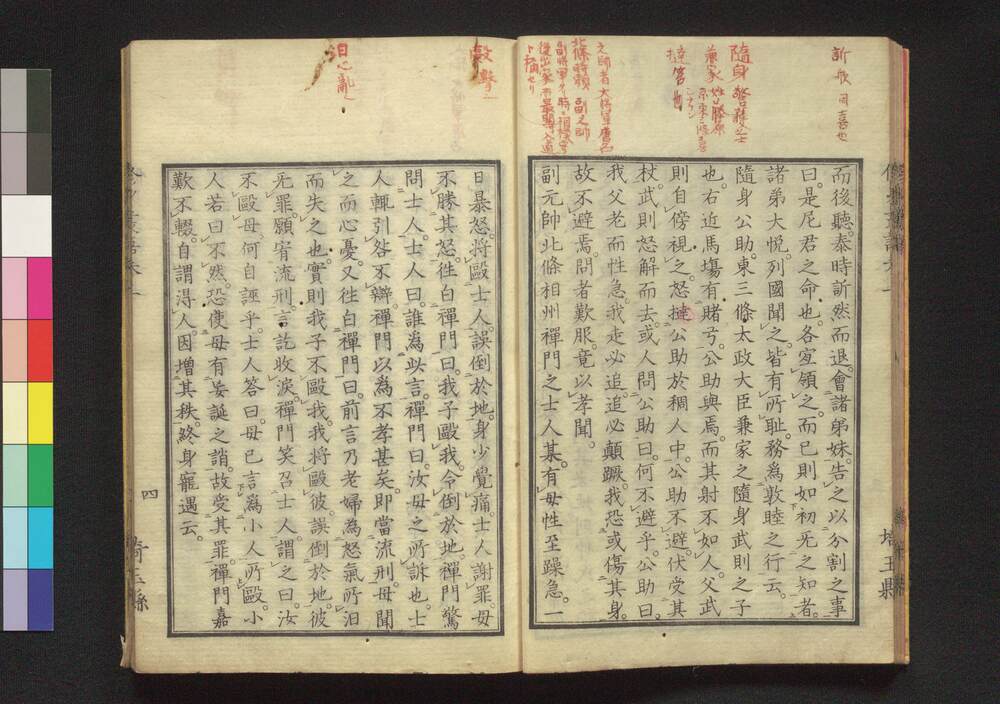 訢欣同喜也
隨身 警護ノ士
兼家 姓ハ藤原
撻 笞也
元帥者大將軍唐名
北條時賴 副元帥
毆 擊
汩 心亂
而後聽。泰時訢然而退。會諸弟妹。告之以分割之事
曰。是尼君之命也。各宜領之而已。則如初死之知者。
諸弟大悅。列國聞之。皆有所耻。務爲敦睦之行云。
隨身公助。東三條太政大臣兼家之隨身武則之子
也。右近馬塲有賭弓。公助與焉。而其射不如人。父武
則自傍視之。怒撻公助於稠人中。公助不避。伏受其
杖。武則怒解而去。或人問公助曰。何不避乎。公助曰。
我父老而性急。我走必追。追必顚蹶。我恐或傷其身。
故不避焉。問者歎服。竟以孝聞。
副元帥北條相州禪門之士人某。有母性至躁急。一
日暴怒。將毆士人。誤倒於地。身少覺痛。士人謝罪。母
不勝其怒。徃白禪門曰。我子毆我。令倒於地。禪門驚
問士人。士人曰。誰爲此言。禪門曰。汝母之所訴也。士
人輒引咎不辯。禪門以爲不孝甚矣。即當流刑。母聞
之而心憂。又徃白禪門曰。前言乃老婦爲怒氣所汩
而失之也。實則我子不毆我。我將毆彼。誤倒於地。彼
无罪。願宥流刑。言訖收淚。禪門笑召士人。謂之曰。汝
不毆母。何自誣乎。士人答曰。母已言爲小人所毆。小
人若曰不然。恐使母有妄誕之誚。故受其罪。禪門嘉
歎不輟。自謂淂人。因增其秩。終身寵遇云。
四